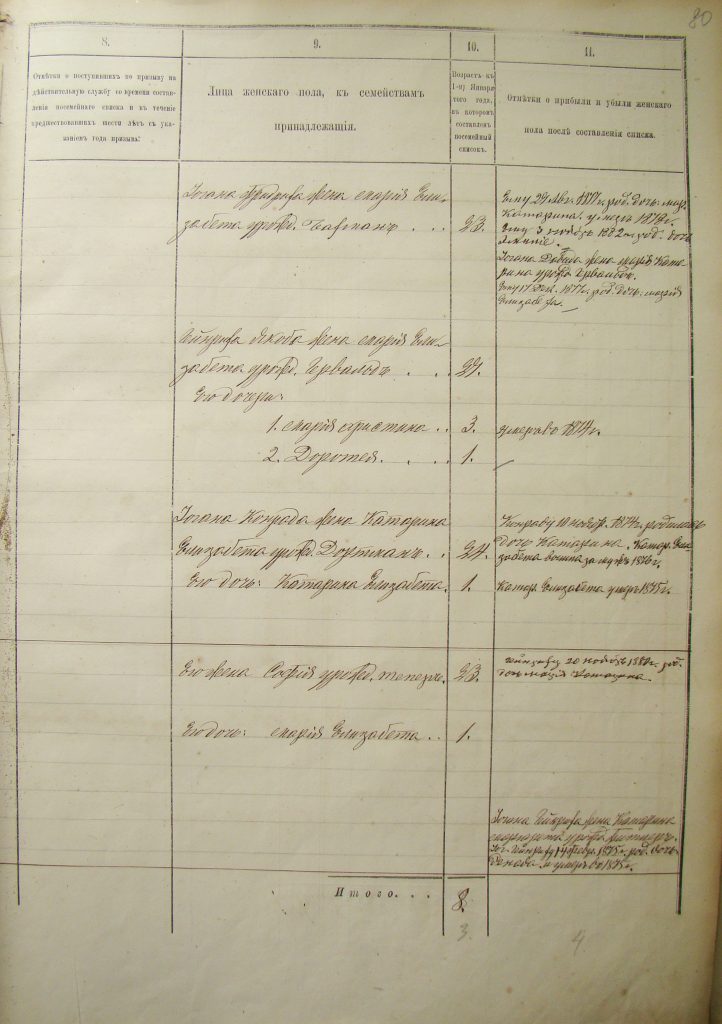 80
8.
9.
10.
11.
Отмѣтки о поступившихъ по призыву на
дѣйствительную службу со времени состав-
ленія посемейнаго списка и въ теченіе
предшествовавшихъ шести лѣтъ съ ука-
заніемъ года призыва.
Лица женскаго пола, къ семействамъ
принадлежащія.
Возрастъ къ
1-му Января
того года,
въ которомъ
составленъ
посемейный
списокъ.
Отмѣтки о прибыли и убыли женскаго
пола послѣ составленія списка.
жена Марія Ели-
забета урожд. . . 23.
Ему 29 Авг. 1877 г. род. дочь: Мар.
Катарина. умерла 1878 г.
Ему 3 ноября 1882 г. род. дочь
Іогана Давида жена Марія Ката-
рина урожд.
Ему 17 1877 г. род. дочь: Марія
Елизабета.
Гейнриха Якоба жена Марія Ели-
забета урожд. . . 27.
Его дочери:
1. Марія Христина . . 3. умерла въ 1874 г.
2. Доротея. . . 1.
Іогана Конрада жена Катарина
Елизабета урожд. . . 24.
Конраду 10 ноября 1874 г. родилась
дочь Катарина. Катар. Ели-
забета вышла за мужъ 1876 г.
Его дочь: Катарина Елизабета. 1. Катар. Елизабета умер. 1875 г.
Его жена Софія урожд. 23.
Гейнриху 20 ноября 1880 г. род.
дочь Марія Катарина.
Его дочь: Марія Елизабета . . 1.
Іогана Гейнриха жена Катарина
Маргарета урожд.
Іог. Гейнриху 14 Февр. 1875 г. род. дочь
и умер. въ 1875 г.
Итого. . . 8.
3.
4